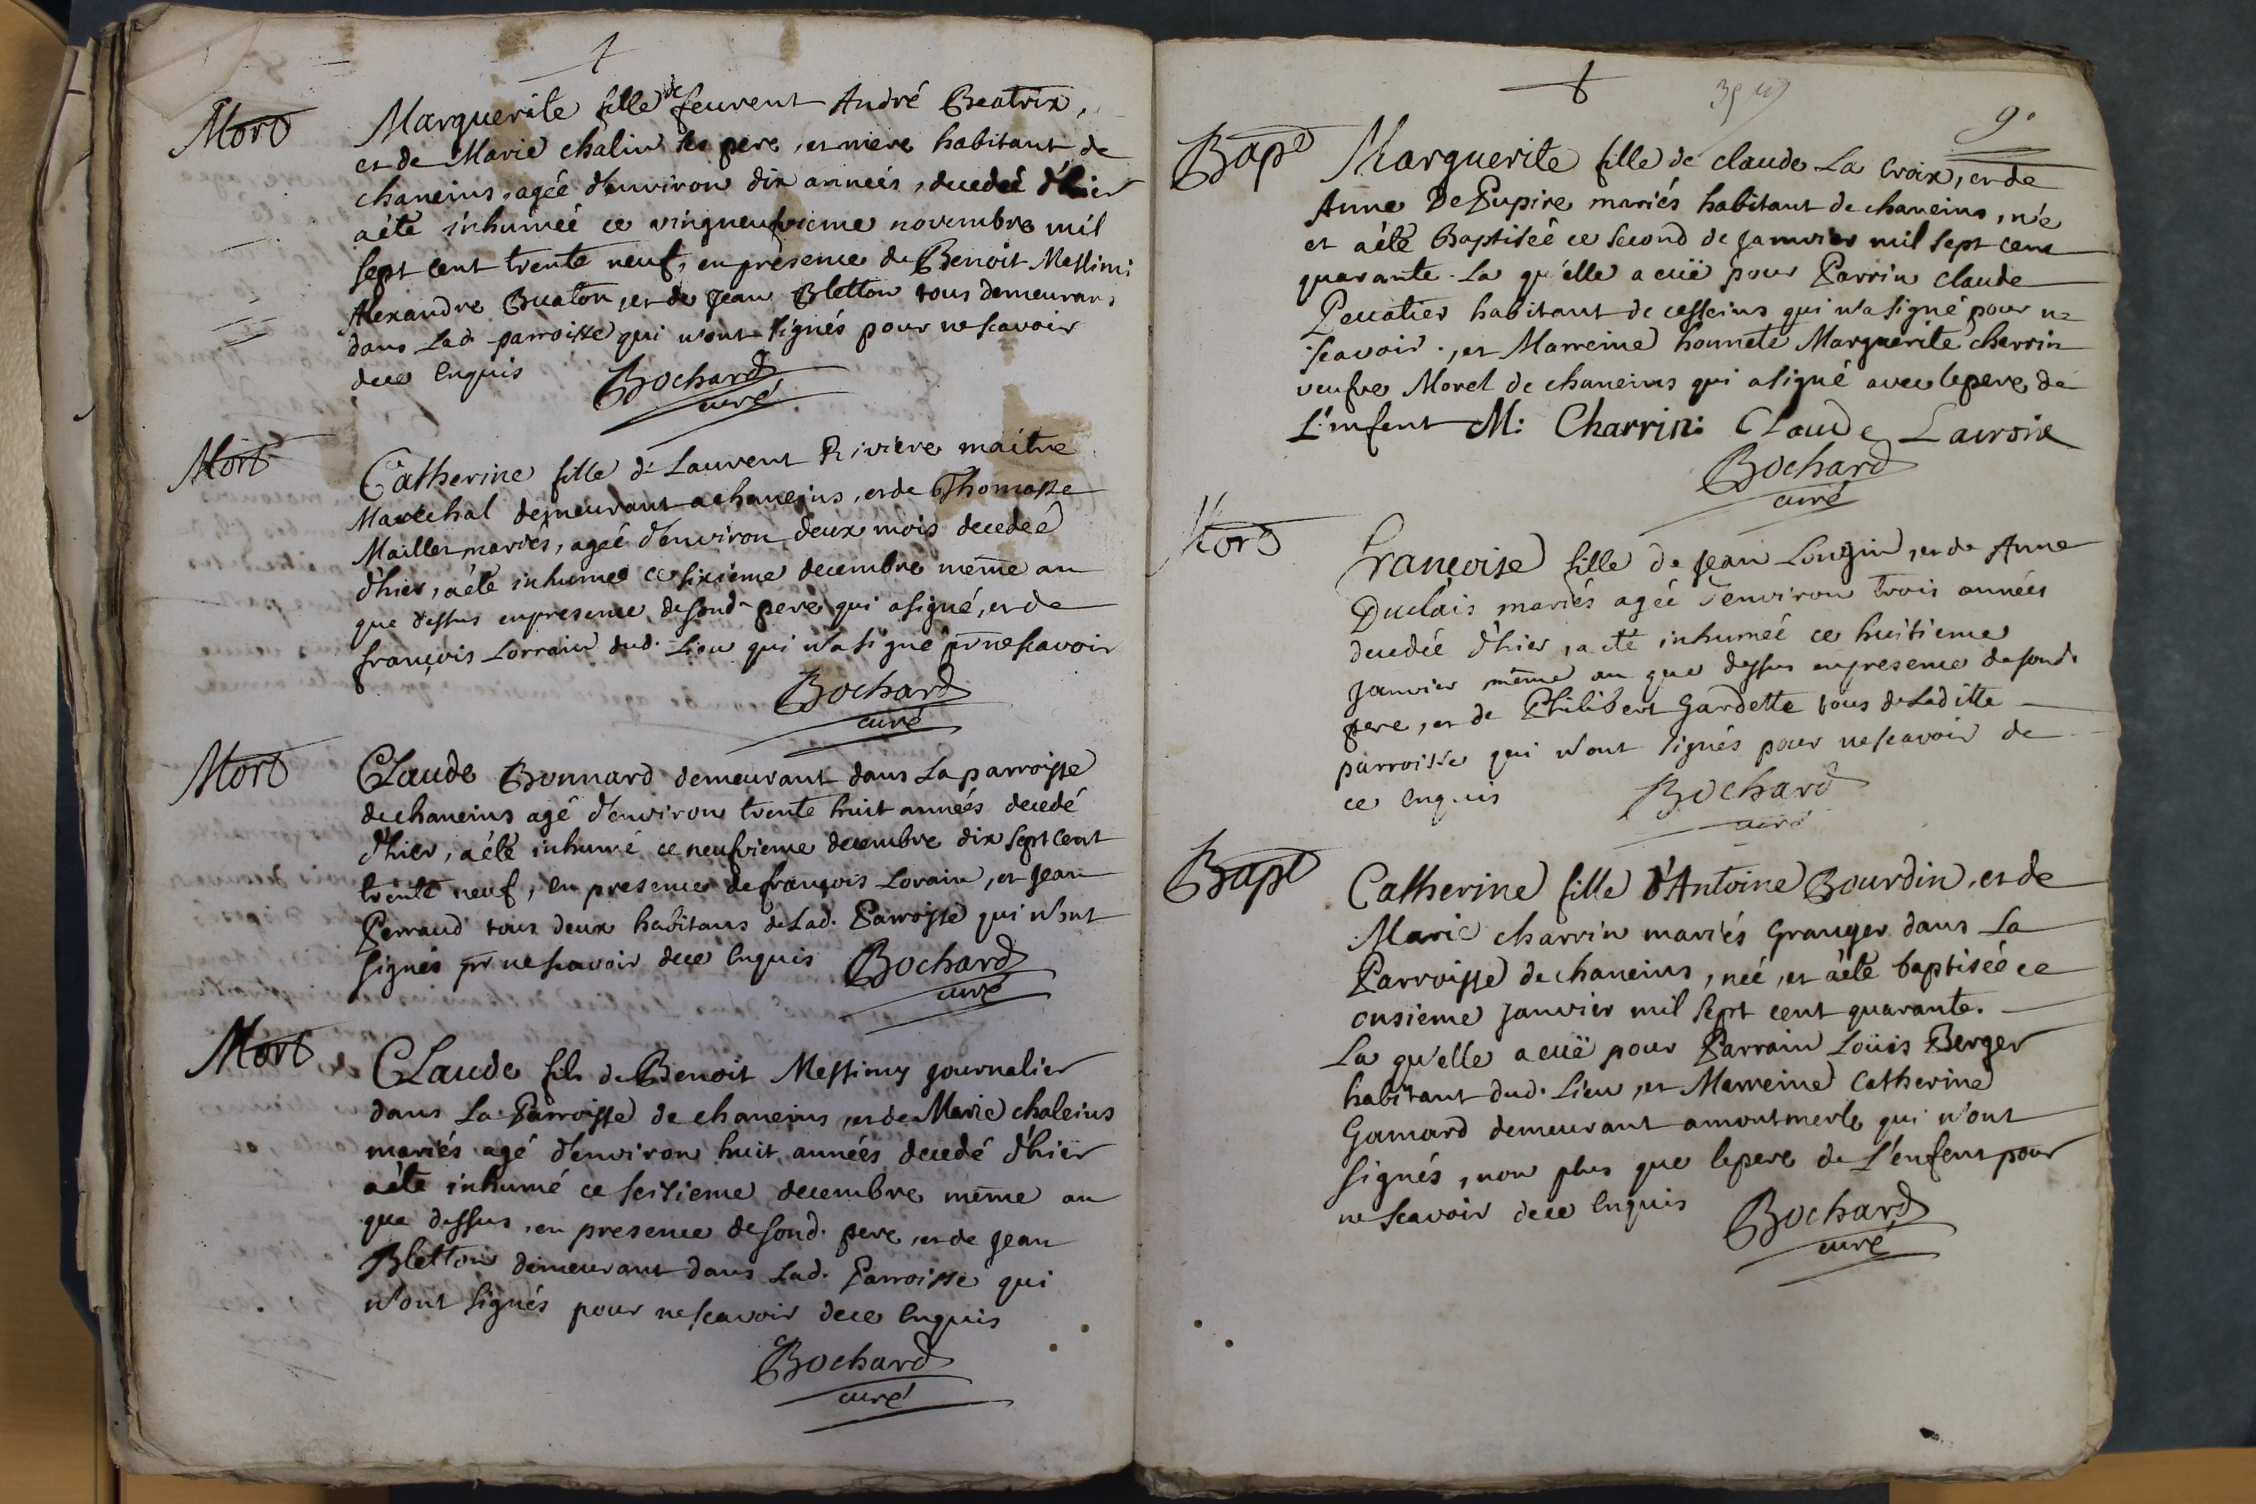 Mort
Marguerite fille de feurent André Beatrix,
et de Marie chalin ses pere, et mere habitant de
chaneins, agée d'environ dix anneés, decedeé d'hier
a été inhumeé ce vingneufvieme novembre mil
sept cent trente neuf, en presence de Benoit Messimi
Alexandre Buaton, et de Jean Bletton tous demeurans
dans lad. parroisse qui n'ont signés pour ne scavoir
de ce enquis Bochard
curé
Mort
Catherine fille de Laurent Riviere maitre
Marechal demeurant a chaneins, et de Thomasse
Maillet mariés, ageé d'environ deux mois decedeé
d'hier, a été inhumeé ce sixieme decembre même an
que dessus en presence de sond. pere qui a signé, et de
françois Lorrain dud. Lieu qui n'a signé pr ne scavoir
Bochard
curé
Mort
Claude Bonnard demeurant dans la parroisse
de chaneins agé d'environ trente huit anneés decedé
d'hier, a été inhumé ce neufvieme decembre dix sept cent
trente neuf, en presence de françois Lorain, et Jean
Perraud tous deux habitans de Lad. Parroisse qui n'ont
signés pr ne scavoir de ce enquis Bochard
curé
Mort
Claude fils de Benoit Messimy journalier
dans La Parroisse de chaneins, et de Marie chaleins
mariés agé d'environ huit anneés decedé d'hier
a été inhumé ce seisieme decembre même an
que dessus, en presence de sond. pere, et de Jean
Bletton demeurant dans Lad. Parroisse qui
n'ont signés pour ne scavoir de ce enquis
Bochard
curé
9.
Bapt
Marguerite fille de claude La Croix, et de
Anne De Pupire mariés habitant de chaneins, née
et a été Baptiseé ce second de janvier mil sept cent
quarante. La qu'elle a euë pour Parrin claude
Peucatier habitant de cesseins qui n'a signé pour ne
scavoir, et Marreine honnete Marguerite cherrin
veufve Morel de chaneins qui a signé avec le pere de
L'enfent M: Charrin: Claude Lacroix
Bochard
curé
Mort
Françoise fille de Jean Longin, et de Anne
Duclais mariés ageé d'environ trois années
decedeé d'hier, a été inhumeé ce huitieme
janvier même an que dessus en presence de sond.
pere, et de Philibert Gardette tous de Laditte
parroisse qui n'ont signés pour ne scavoir de
ce enquis Bochard
curé
Bapt
Catherine fille d'Antoine Bourdin, et de
Marie charrin mariés Granger dans La
Parroisse de chaneins, neé, et a été baptiseé ce
onsieme janvier mil sept cent quarante.
La qu'elle a euë pour Parrain Loüis Berger
habitant dud. Lieu, et Marreine Catherine
Gamard demeurant a montmerle qui n'ont
signés, non plus que le pere de L'enfent pour
ne scavoir de ce enquis Bochard
curé